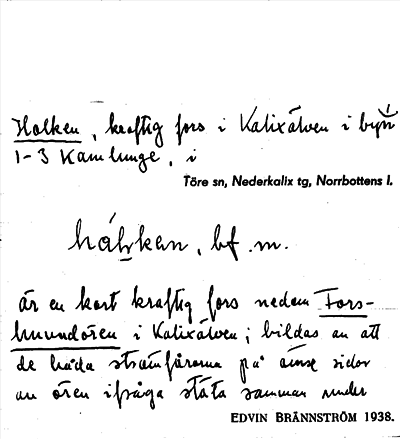 Holken, kraftig fors i Kalixälven i byn
1-3 Kamlunge, i
Töre sn, Nederkalix tg, Norrbottens l.
bf. m.
är en kort kraftig fors nedom Fors-
hundören i Kalixälven; bildas av att
de båda strömfårorna på ömse sidor
av ören ifråga stöta samman under
EDVIN BRÄNNSTRÖM 1938.